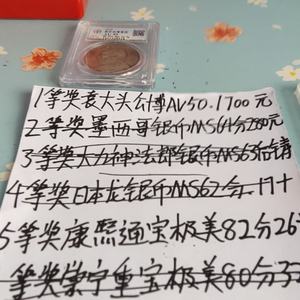 1等奖袁大头公博AU50.1700元
2等奖墨西哥银币MS61分280元
3等奖大力神法郎银币MS63
4等奖日本龙银币MS62分
5等奖康熙通宝极美82分26
等奖崇宁重宝极美80分3